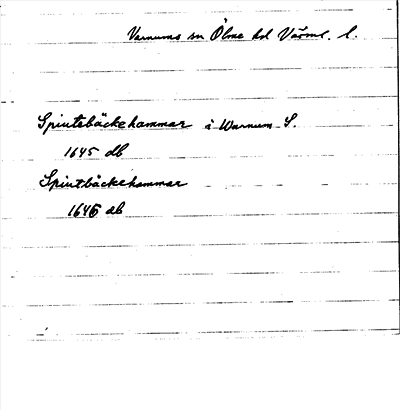 Varnums sn Ölme hd Värml. l.
Spintsbäckehammar i Warnum S.
1645 db
Spintbäckehammar
1646 db